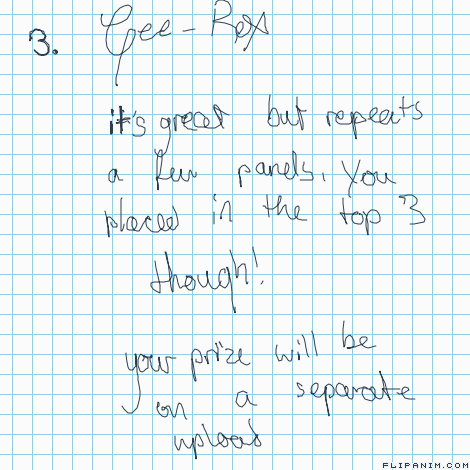 3. Gee-Rex
it's great but repeats
a few panels. You
placed in the top 3
though!
your prize will be
on a separate
upload
FLIPANIM.COM